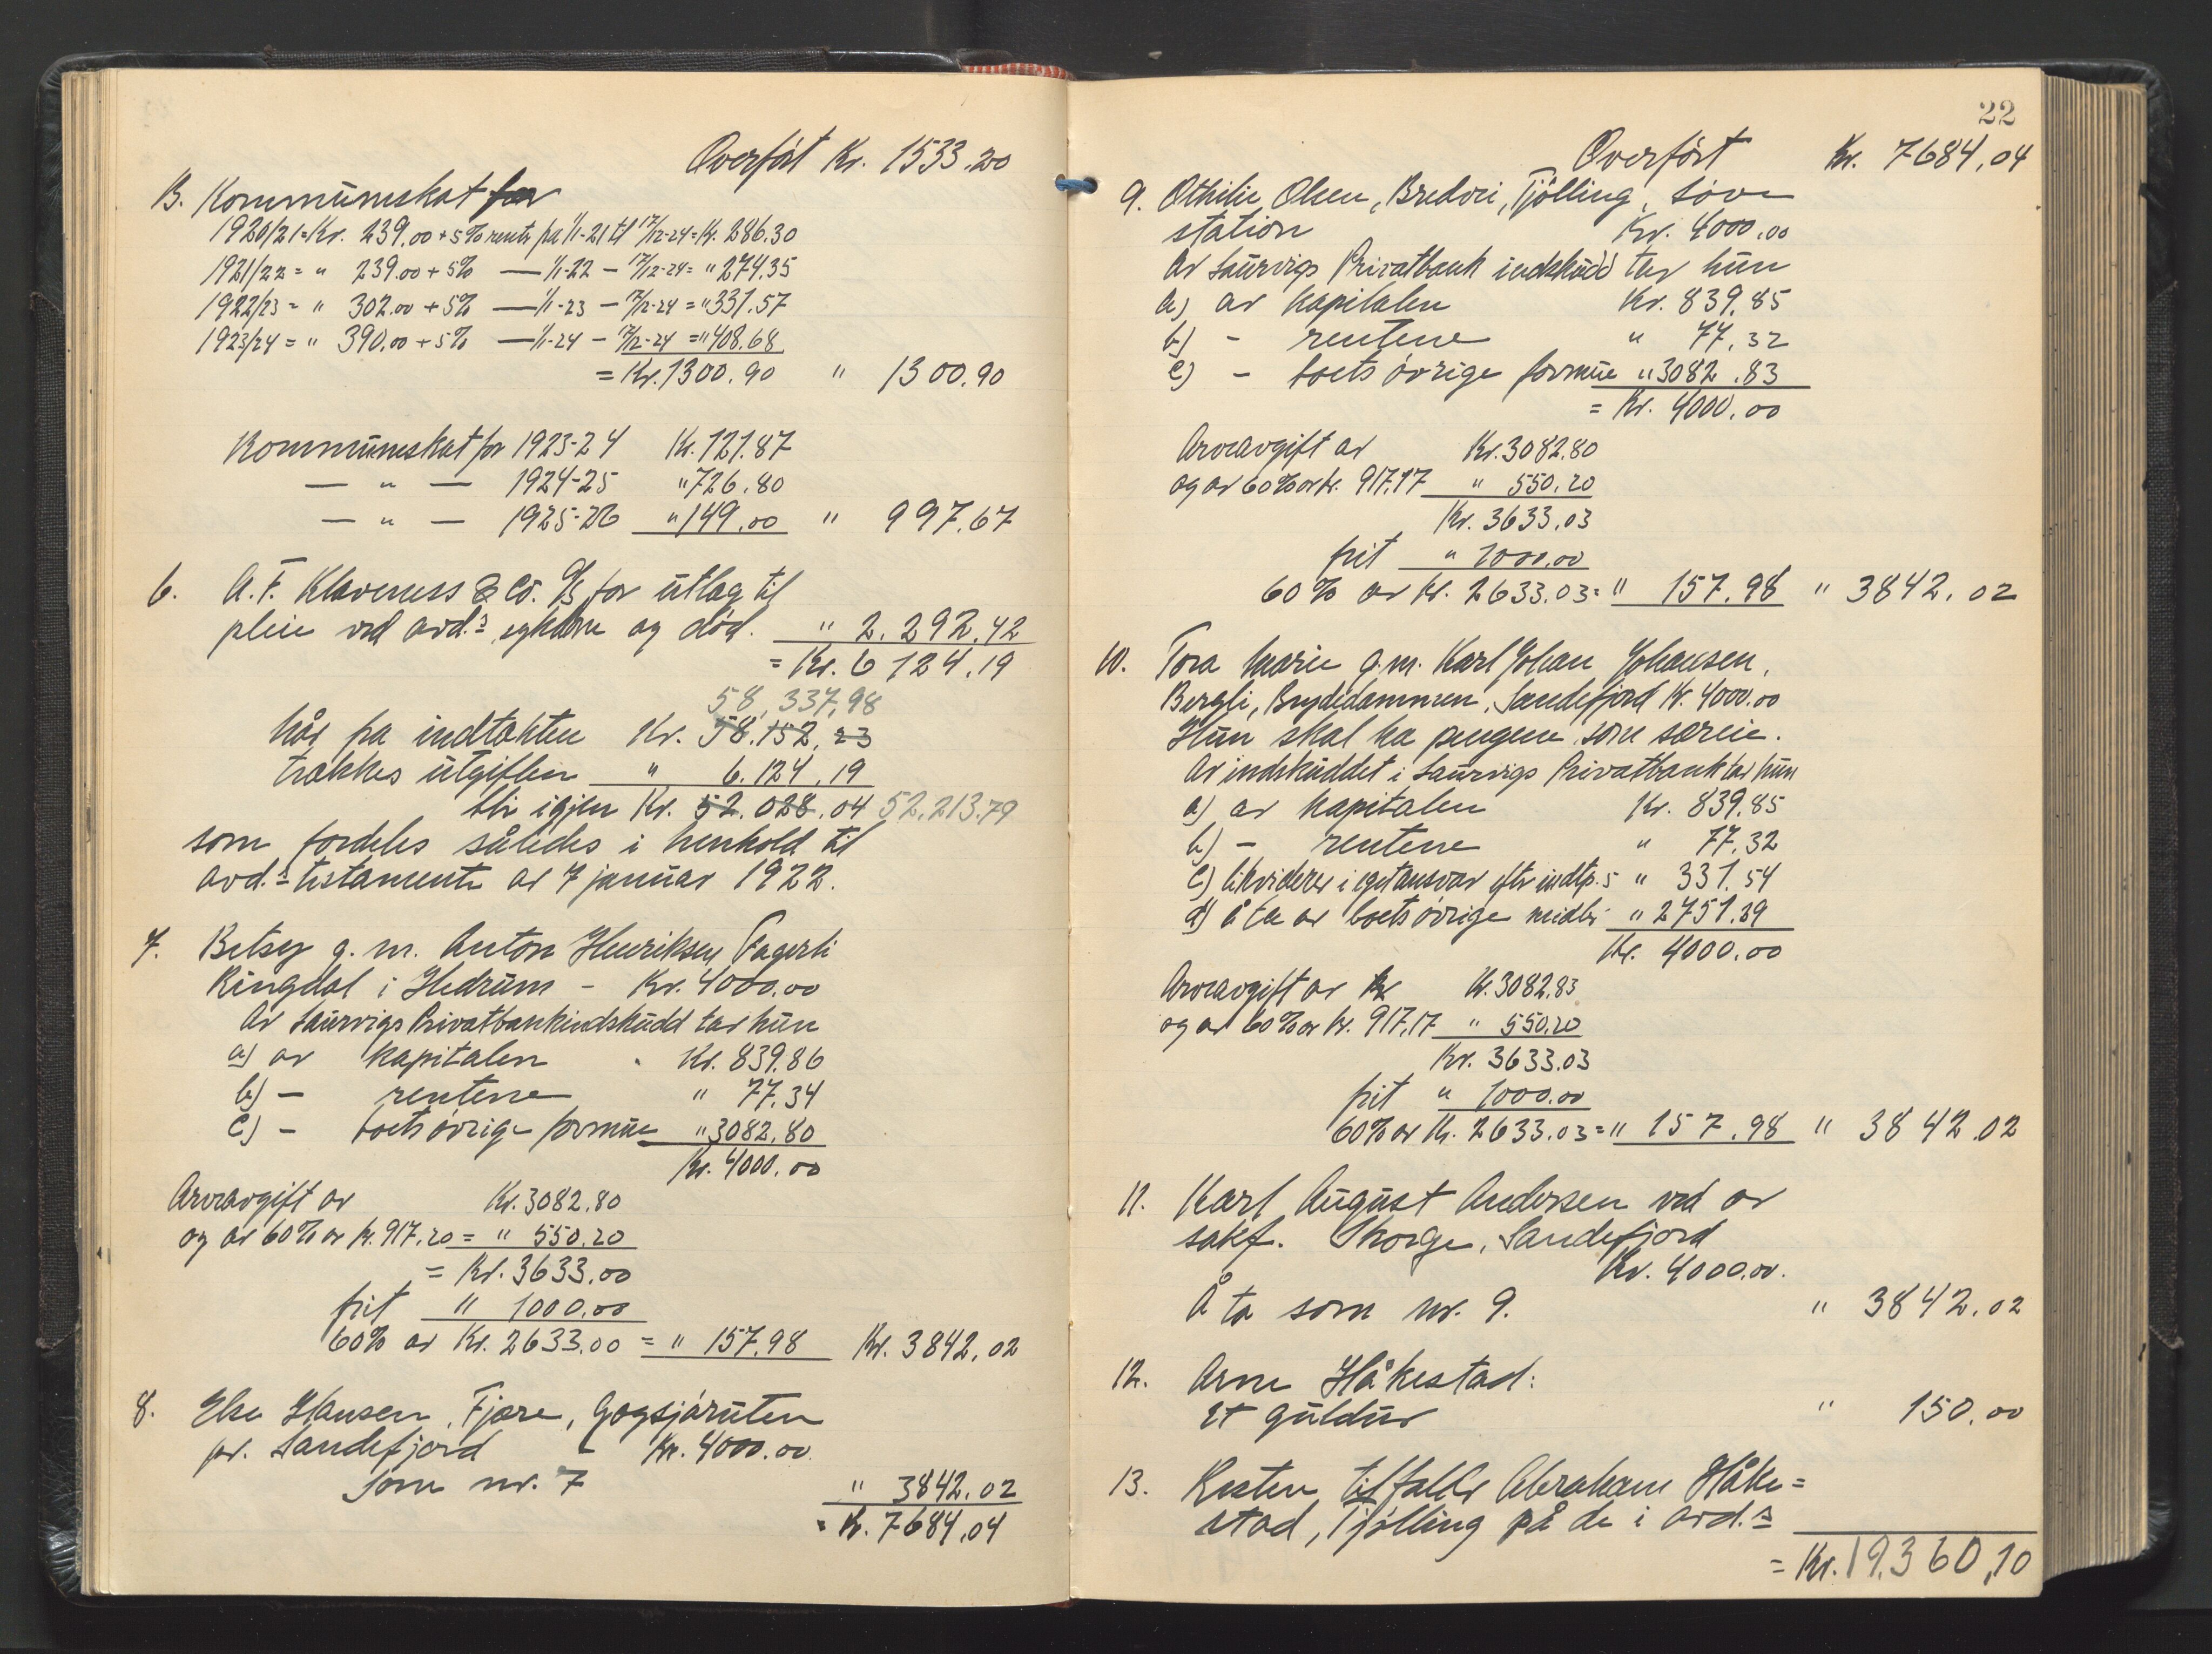 Overført Kr. 1533.20
B. Kommuneskat for
1920/21 = Kr. 239.00 + 5% rente fra 1/1-21 til 17/12-24 = Kr. 286.30
1921/22 = " 239.00 + 5% — 1/1-22 — 17/12-24 = " 274.35
1922/23 = " 302.00 + 5% — 1/1-23 — 17/12-24 = " 331.57
1923/24 = " 390.00 + 5% — 1/1-24 — 17/12-24 = " 408.68
= Kr. 1300.90 " 1300.90
Kommuneskat for 1923-24 Kr. 121.87
— " — 1924-25 " 726.80
— " — 1925-26 " 149.00 " 997.67
6. A. F. Klaveness & Co. A/S for utlag til
pleie ved avd.s sykdom og død. " 2.292.42
= Kr. 6124.19
58.337,98
Når fra indtækten Kr. 58.152.23
trækkes utgiften " 6.124.19
blir igjen Kr. 52.028.04 52.213.79
som fordeles således i henhold til
avd.s testamente av 7 januar 1922.
7. Betsy g. m. Anton Henriksen Fagerli
Ringdal i Hedrum - Kr. 4000.00
Av Laurvigs Privatbankindskudd tar hun
a) av kapitalen Kr. 839.86
b) — rentene " 77.34
c) — boets øvrige formue " 3082.80
Kr. 4000.00
Arveavgift av Kr. 3082.80
og av 60% av Kr. 917.20 = " 550.20
= Kr. 3633.00
frit " 1000.00
60% av Kr. 2633.00 = " 157.98 Kr. 3842.02
8. Else Hansen, Fjære, Gogsjøruten
pr. Sandefjord - Kr. 4000.00
Som nr. 7 " 3842.02
= Kr. 7684.04
22
Overført Kr. 7684.04
9. Othilie Olsen, Bredvei, Tjølling,
station Kr. 4000.00
Av Laurvigs Privatbank indskudd tar hun
a) av kapitalen Kr. 839.85
b) - rentene " 77.32
c) - boets øvrige formue " 3082.83
= Kr. 4000.00
Arveavgift av Kr. 3082.80
og av 60% av kr. 917.17 " 550.20
Kr. 3633.03
frit " 1000.00
60% av Kr. 2633.03 = " 157.98 " 3842.02
10. Tora Marie g. m. Karl Johan Johansen,
Bergli, Bugdedammen, Sandefjord Kr. 4000.00
Hun skal ha pengene som særeie.
Av indskuddet i Laurvigs Privatbank tar hun
a) av kapitalen Kr. 839.85
b) - rentene " 77.32
c) likviderer i eget ansvar efter indtp. 5 " 331.54
d) å ta av boets øvrige midler " 2751.29
Kr. 4000.00
Arveavgift av Kr Kr. 3082.83
og av 60% av Kr. 917.17 " 550.20
Kr. 3633.03
frit " 1000.00
60% av Kr. 2633.03 = " 157.98 " 3842.02
11. Karl August Andersen ved or
sakf. Skorge, Sandefjord
Kr. 4000.00.
Å ta som nr. 9. " 3842.02
12. Arne Håkestad:
Et guldur " 150.00
13. Resten tilfaller Abraham Håke=
stad, Tjølling på de i avd.s
= Kr. 19.360,10